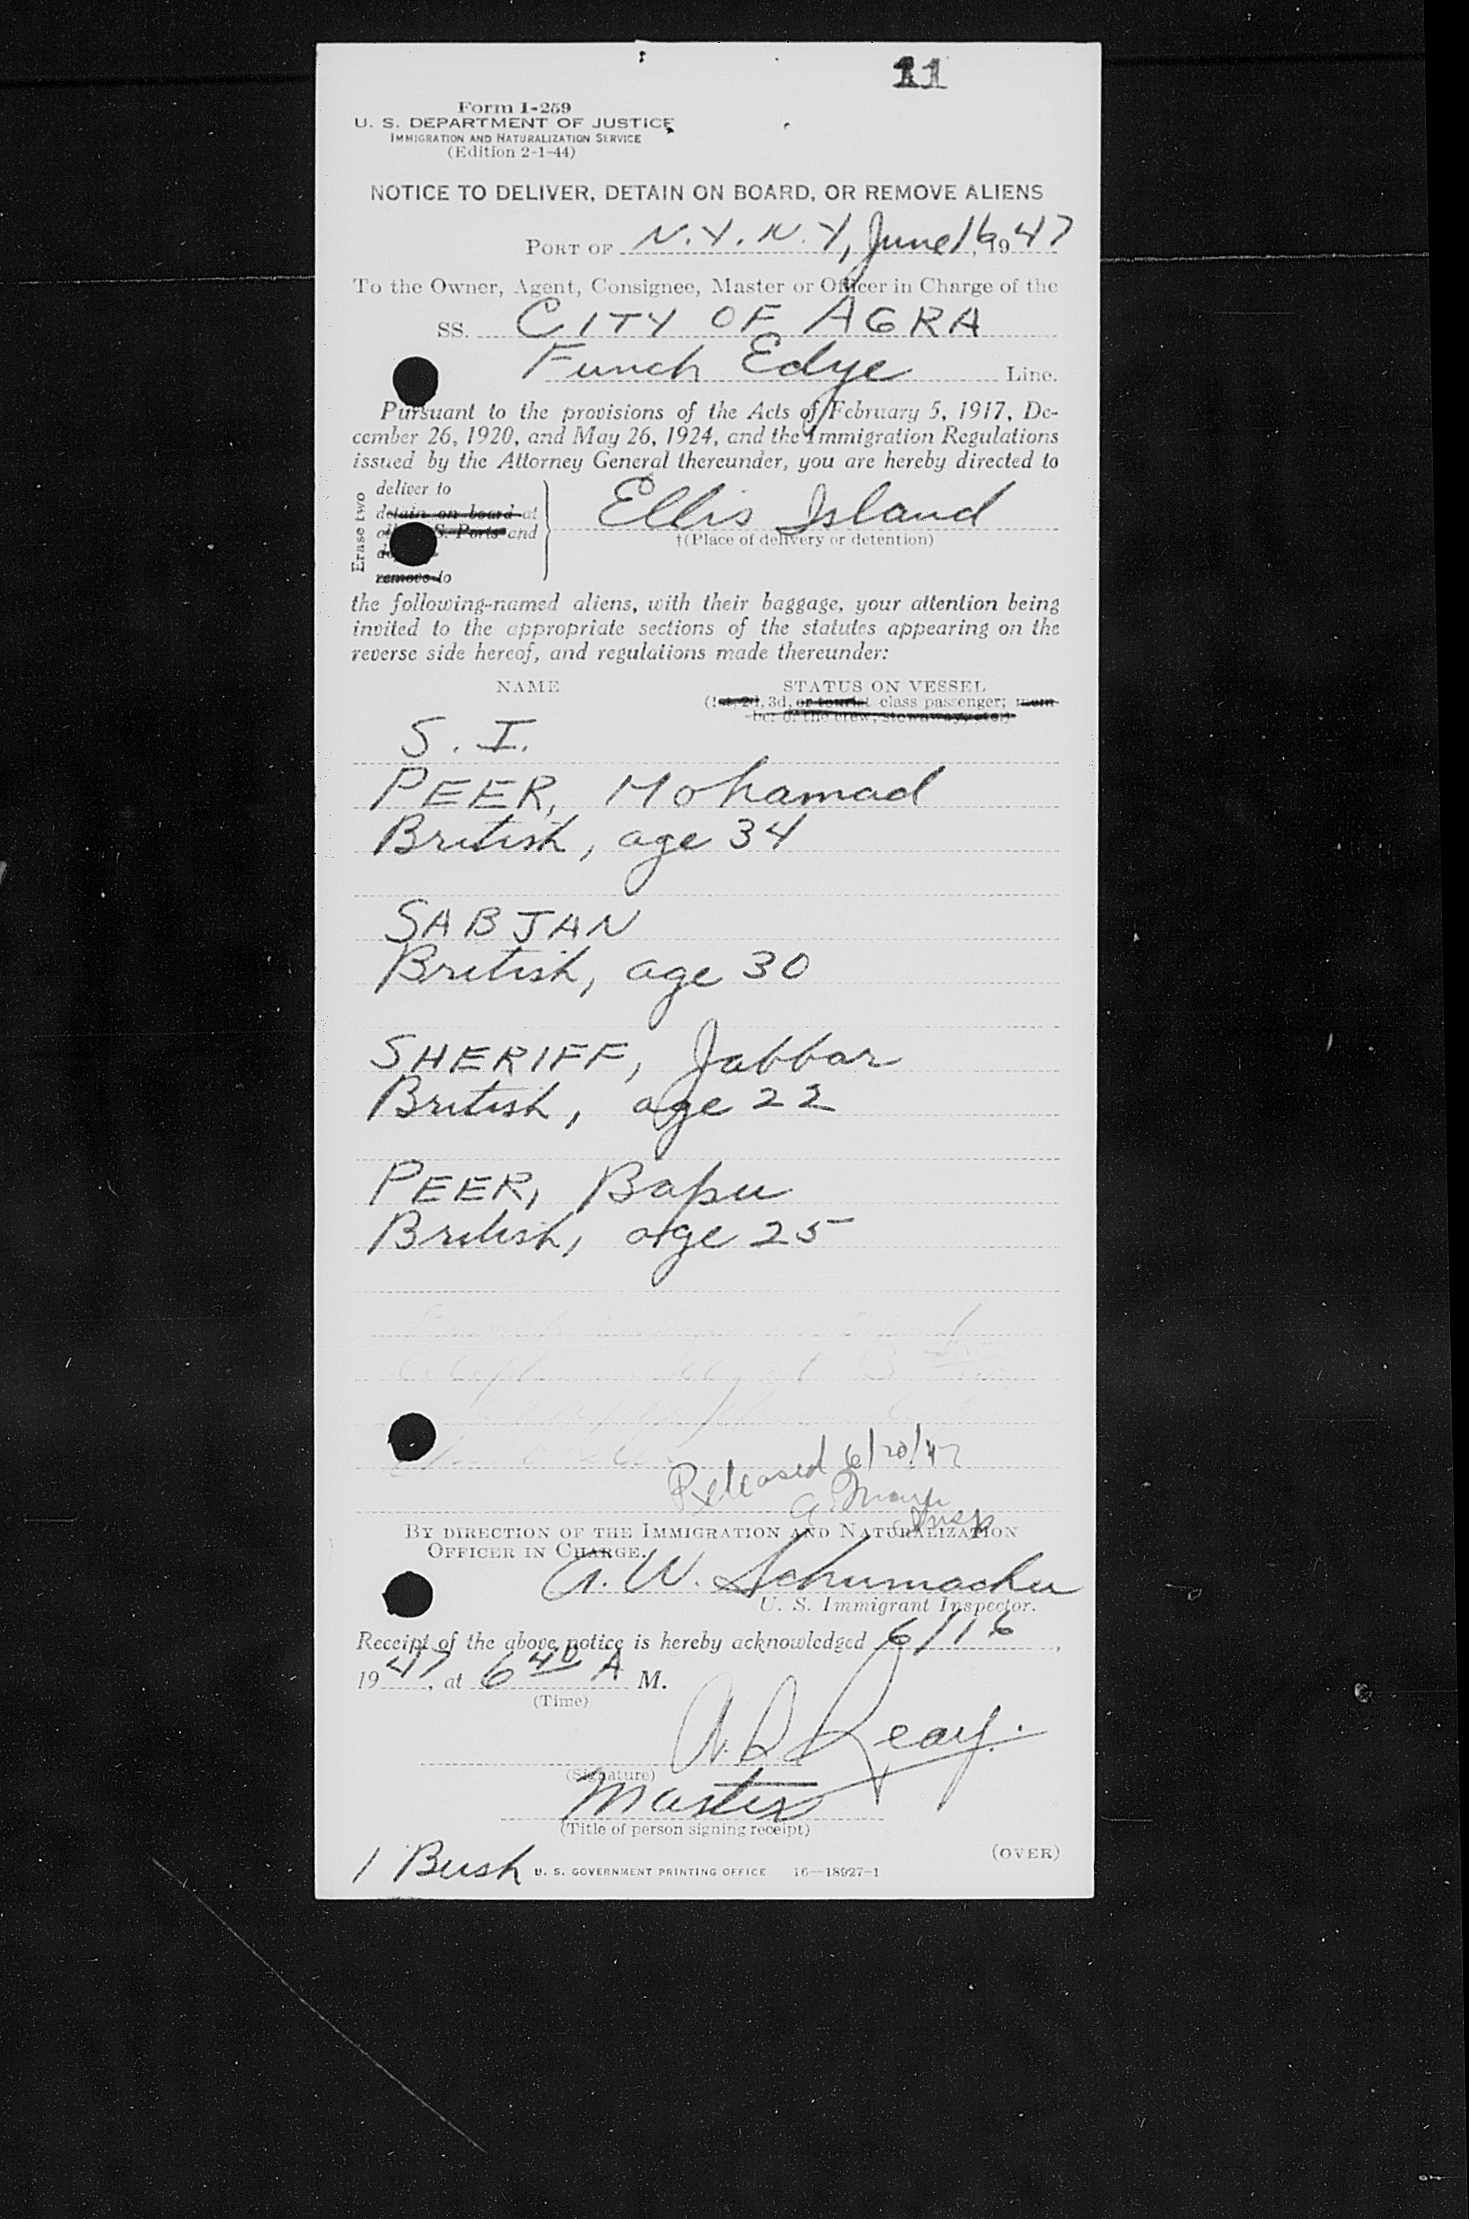 11
Form I-259
U. S. DEPARTMENT OF JUSTICE
IMMIGRATION AND NATURALIZATION SERVICE
(Edition 2-1-44)
NOTICE TO DELIVER, DETAIN ON BOARD, OR REMOVE ALIENS
PORT OF N.Y. N.Y, June 16, 1947
To the Owner, Agent, Consignee, Master or Officer in Charge of the
SS. CITY OF AGRA
Funch Edye Line.
Pursuant to the provisions of the Acts of February 5, 1917, De-
cember 26, 1920, and May 26, 1924, and the Immigration Regulations
issued by the Attorney General thereunder, you are hereby directed to
Erase two
deliver to
detain on board at
S. Ports and
remove to
Ellis Island
†(Place of delivery or detention)
the following-named aliens, with their baggage, your attention being
invited to the appropriate sections of the statutes appearing on the
reverse side hereof, and regulations made thereunder:
NAME STATUS ON VESSEL
(1st, 2d, 3d, or tourist class passenger; mem-
ber of the crew, stowaway, etc.)
S. I.
PEER, Mohamad
British, age 34
SABJAN
British, age 30
SHERIFF, Jabbar
British, age 22
PEER, Bapu
British, age 25
Released 6/20/47
Insp
BY DIRECTION OF THE IMMIGRATION AND NATURALIZATION
OFFICER IN CHARGE.
A. W. Schumacher
U. S. Immigrant Inspector.
Receipt of the above notice is hereby acknowledged 6/16,
1947, at 6 40 A M.
(Time)
(Signature)
Master
(Title of person signing receipt)
(OVER)
1 Bush U. S. GOVERNMENT PRINTING OFFICE 16—18927-1